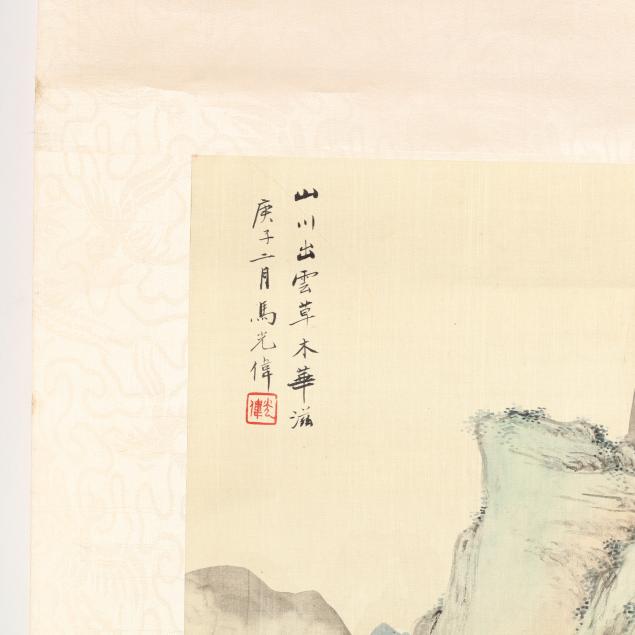 山川出雲草木華滋
庚子二月馬光偉
光偉